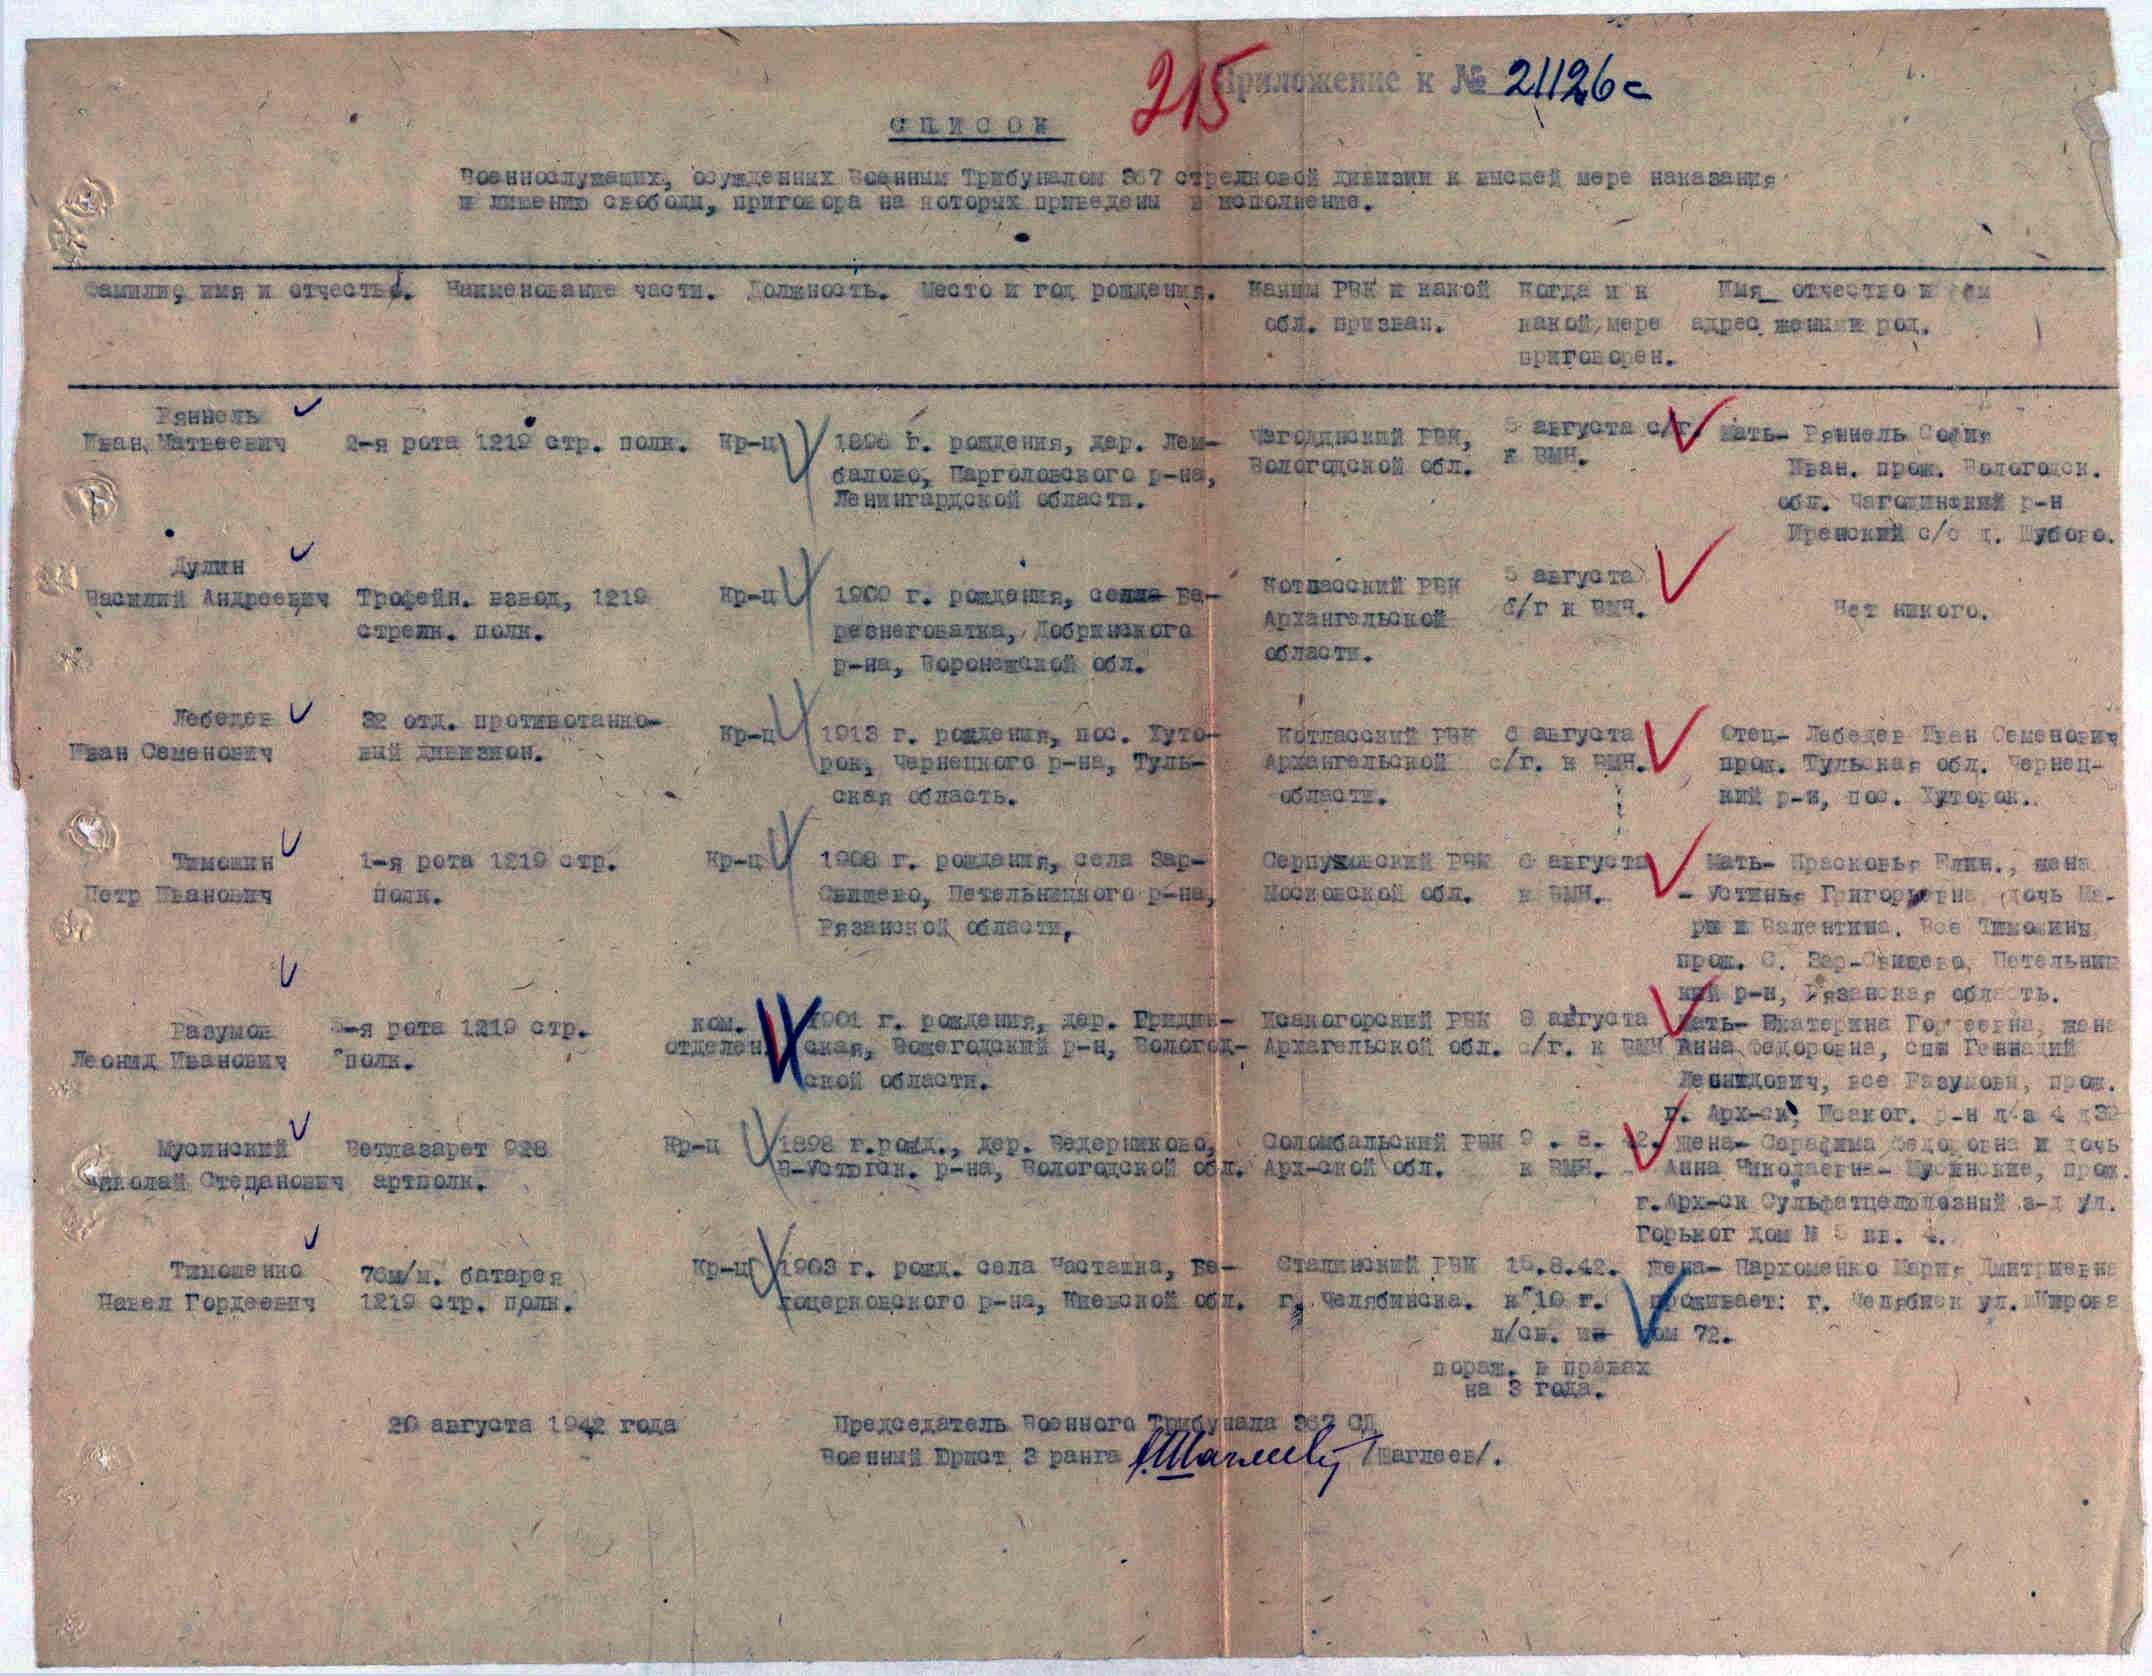 215 Приложение к № 21126с
СПИСОК
Военнослужащих, осужденных Военным Трибуналом 367 стрелковой дивизии к высшей мере наказания
и лишению свободы, приговора на которых приведены в исполнение.
Фамилия, имя и отчество. Наименование части. Должность. Место и год рождения. Каким РВК и какой обл. призван. Когда и к какой мере приговорен. Имя отчество и адрес жены и род.
Ряннель
Иван Матвеевич
2-я рота 1219 стр. полк.
Кр-ц
1898 г. рождения, дер. Лем-
балово, Парголовского р-на,
Ленингардской области.
Чагодинский РВК,
Вологодской обл.
5 августа с/г.
к ВМН.
Мать- Ряннель София
Иван. прож. Вологодск.
обл. Чагодинский р-н
с/с д.
Дулин
Василий Андреевич
Трофейн. взвод, 1219
стрелк. полк.
Кр-ц
1900 г. рождения, села Бе-
резнеговатка, Добринского
р-на, Воронежской обл.
Котласский РВК
Архангельской
области.
5 августа
с/г к ВМН.
Нет никого.
Лебедев
Иван Семенович
32 отд. противотанко-
вый дивизион.
Кр-ц
1913 г. рождения, пос. Хуто-
рок, Чернецкого р-на, Туль-
ская область.
Котласский РВК
Архангельской
области.
6 августа
с/г. к ВМН.
Отец- Лебедев Иван Семенович
прож. Тульская обл. Чернец-
кий р-н, пос. Хуторок.
Тимошин
Петр Иванович
1-я рота 1219 стр.
полк.
Кр-ц
1908 г. рождения, села Зар-
Свищево, Петельницкого р-на,
Рязанской области,
Серпуховский РВК
Московской обл.
6 августа
к ВМН.
Мать- Прасковья Елин., жена
- Устинья Григорьевна дочь Ма-
рия и Валентина. Все Тимошины
прож. С. Зар-Свищево, Петельниц
кий р-н, Рязанская область.
Разумов
Леонид Иванович
-я рота 1219 стр.
полк.
ком.
отделен.
1901 г. рождения, дер. Гридин-
ская, Вожегодский р-н, Вологод-
ской области.
Исакогорский РВК
Архагельской обл.
8 августа
с/г. к ВМН
Мать- Екатерина Гордеевна, жена
Анна Федоровна, сын Геннадий
Леонидович, все Разумовы, прож.
г. Арх-ск, Исаког. р-н д. 32
Мусинский
Николай Степанович
Ветлазарет 928
артполк.
Кр-ц
1898 г.рожд., дер. Ведерниково,
В-Устюгск. р-на, Вологодской обл.
Соломбальский РВК
Арх-ской обл.
9 . 8. 42.
к ВМН.
Жена- Серафима Федоровна и дочь
Анна Николаевна- Мусинские, прож.
г.Арх-ск Сульфатцелюлозный з-д ул.
Горьког дом № 5 кв. 4.
Тимошенко
Павел Гордеевич
76м/м. батарея
1219 стр. полк.
Кр-ц
1903 г. рожд. села Часташка, Бе-
лоцерковского р-на, Киевской обл.
Сталинский РВК
г. Челябинска.
15.8.42.
к 10 г.
л/св. из
пораж. в правах
на 3 года.
Жена- Пархоменко Мария Дмитриевна
проживает: г. Челябиск ул.
дом 72.
20 августа 1942 года
Председатель Военного Трибунала 367 СД
Военный Юрист 3 ранга /Шаглеев/.